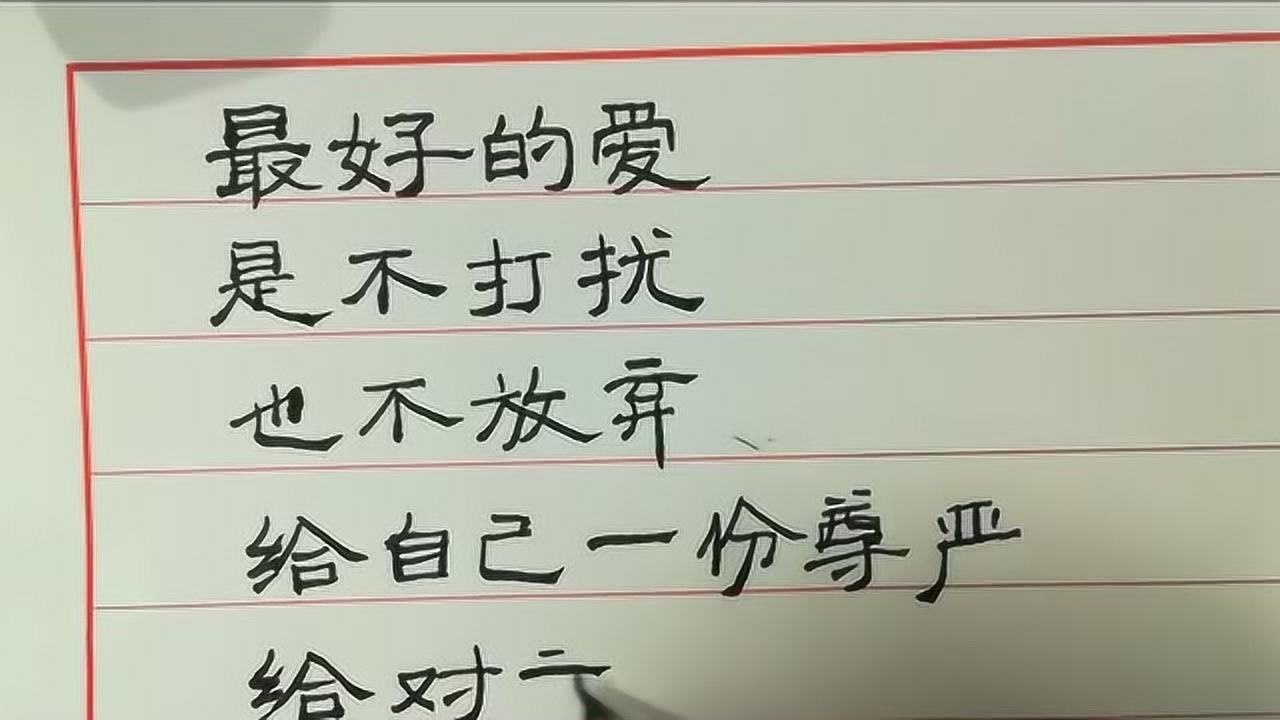 最好的爱
是不打扰
也不放弃
给自己一份尊严
给对